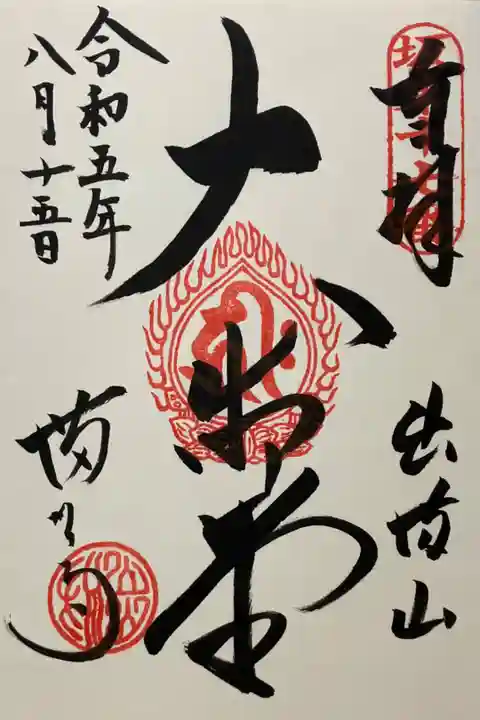 奉拝
出流山
大御堂
令和五年
八月十五日
満願寺